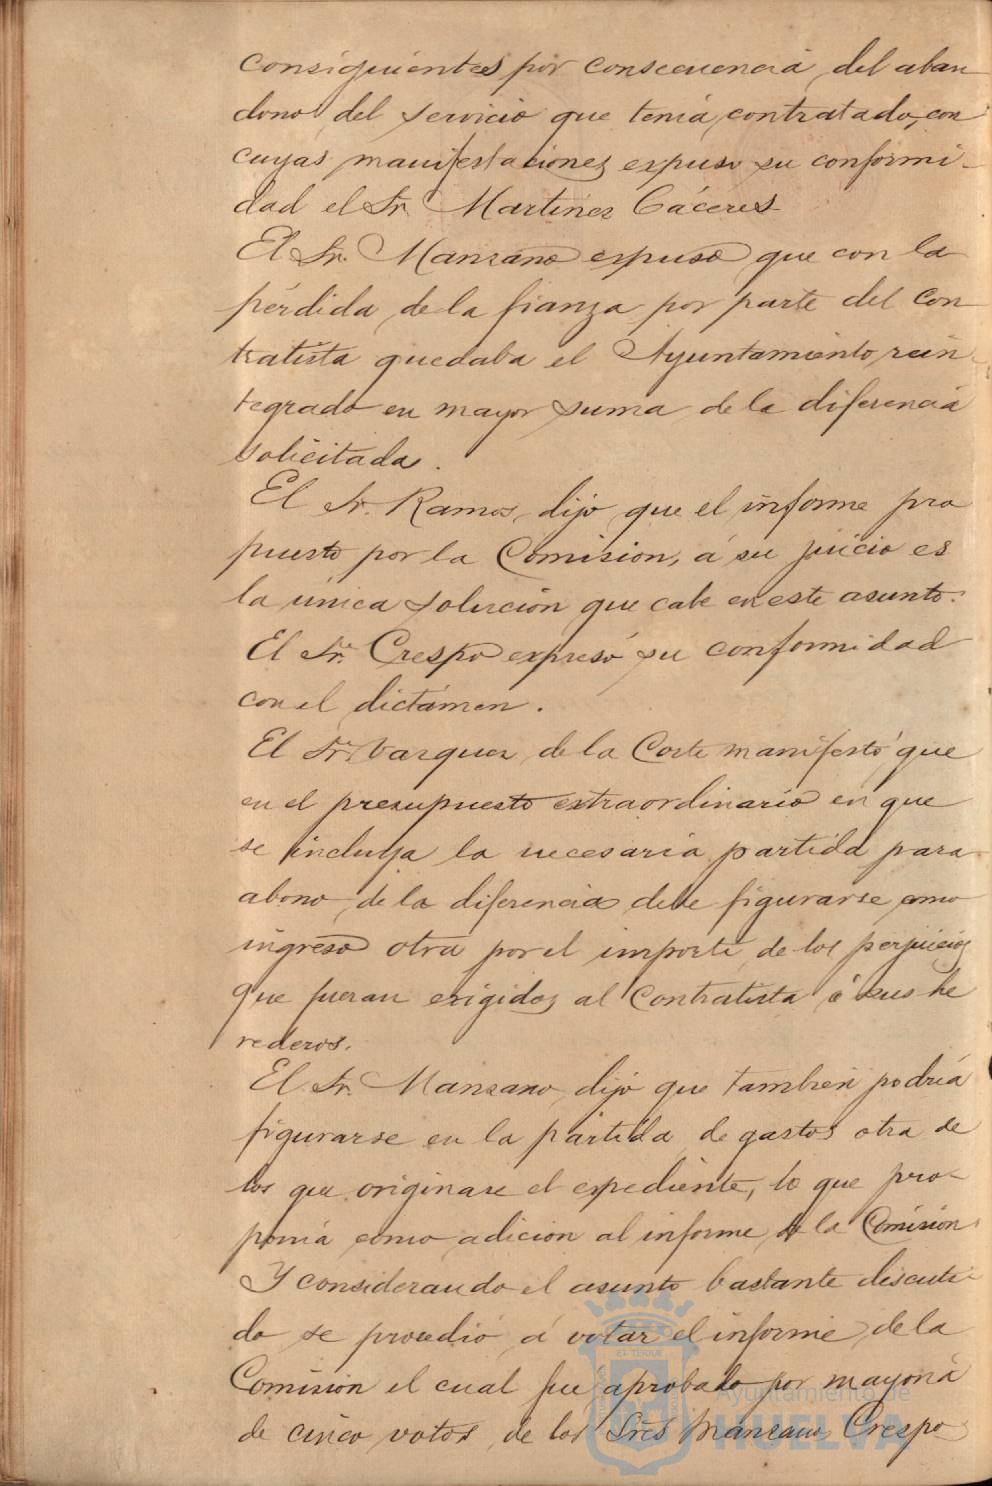 consiguientes por consecuencia del aban
dono del servicio que tenia contratado, con
cuyas manifestaciones espuso su conformi-
dad el Sr. Martinez Cáceres
El Sr. Manzano espuso que con la
pérdida de la fianza por parte del con
tratista quedaba el Ayuntamiento rein-
tegrado en mayor suma de la diferencia
solicitada.
El Sr. Ramos dijo que el informe pro
puesto por la Comision, á su juicio es
la única solución que cabe en este asunto.
El Sr. Crespo expresó su conformidad
con el dictámen.
El Sr. Vazquez de la Corte manifestó que
en el presupuesto extraordinario en que
se incluya la necesaria partida para
abono de la diferencia debe figurarse como
ingreso otra por el importe de los perjuicios
que fueran exigidos al Contratista ó sus he
rederos.
El Sr. Manzano dijo que tambien podría
figurarse en la partida de gastos otra de
los que originase el espediente, lo que pro-
ponia como adicion al informe de la Comision
Y considerando el asunto bastante discuti-
do se procedió á votar el informe de la
Comision el cual fue aprobado por mayoria
de cinco votos de los Sres Manzano, Crespo
Ayuntamiento de
HUELVA